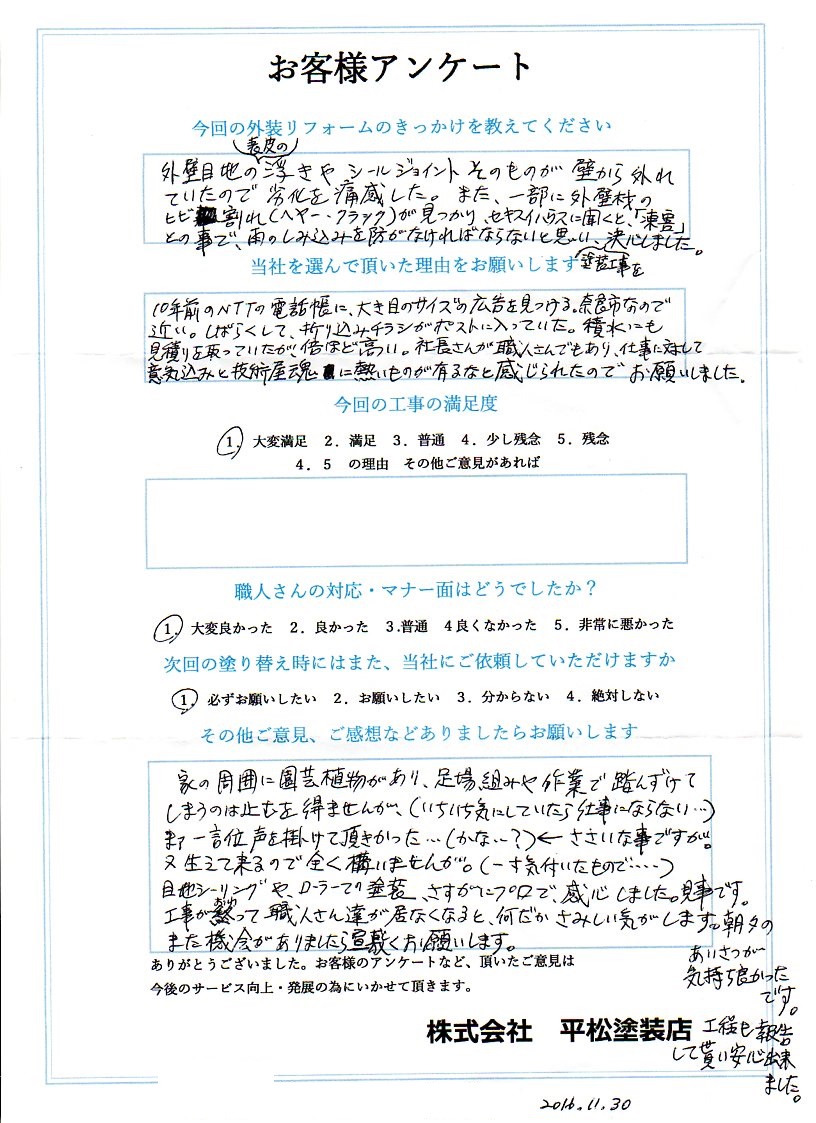 お客様アンケート
今回の外装リフォームのきっかけを教えてください
表皮の
外壁目地の浮きや シールジョイント そのものが 壁から外れ
ていたので 劣化を痛感した。また、一部に外壁材の
ヒビ割れ(ヘヤー・クラック)が見つかり、セキスイハウスに聞くと、「凍害」
との事で、雨のしみ込みを防がなければならないと思い、決心しました。
塗装工事を
当社を選んで頂いた理由をお願いします
10年前のNTTの電話帳に、大き目のサイズの広告を見つける。奈良市なので
近い。しばらくして、折り込みチラシがポストに入っていた。積水にも
見積りを取っていたが、倍ほど高い。社長さんが職人さんでもあり、仕事に対して
意気込みと技術屋魂に熱いものが有るなと感じられたので お願いしました。
今回の工事の満足度
1. 大変満足 2. 満足 3. 普通 4. 少し残念 5. 残念
4. 5 の理由 その他ご意見があれば
職人さんの対応・マナー面はどうでしたか？
1. 大変良かった 2. 良かった 3.普通 4良くなかった 5. 非常に悪かった
次回の塗り替え時にはまた、当社にご依頼していただけますか
1. 必ずお願いしたい 2. お願いしたい 3. 分からない 4. 絶対しない
その他ご意見、ご感想などありましたらお願いします
家の周囲に園芸植物があり、足場組みや作業で踏んずけて
しまうのは止むを得ませんが、(いちいち気にしていたら仕事にならない…)
まァ一言位声を掛けて頂きたかった…(かな…?)← ささいな事ですが。
又生えて来るので全く構いませんが。(一寸気付いたもので……)
目地シーリングや、ローラーでの塗装、さすがにプロで、感心しました。見事です。
工事が終って職人さん達が居なくなると、何だか さみしい気がします。朝夕の
あいさつが
気持ち良かった
です。
また機会がありましたら宜敷くお願いします。
ありがとうございました。お客様のアンケートなど、頂いたご意見は
今後のサービス向上・発展の為にいかせて頂きます。
株式会社 平松塗装店
工程も報告
して貰い安心出来
ました。
2016.11.30